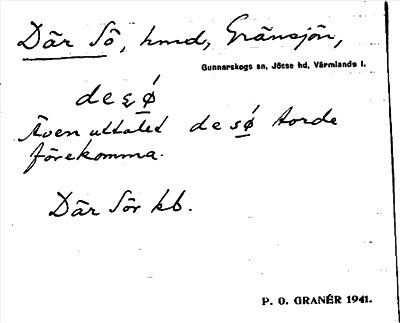 Där Sö, hmd, Gränsjön,
Gunnarskogs sn, Jösse hd, Värmlands l.
de ȿ ǿ
Även uttalet de sǿ torde
förekomma.
Där Sör kb.
P. O. GRANÉR 1941.